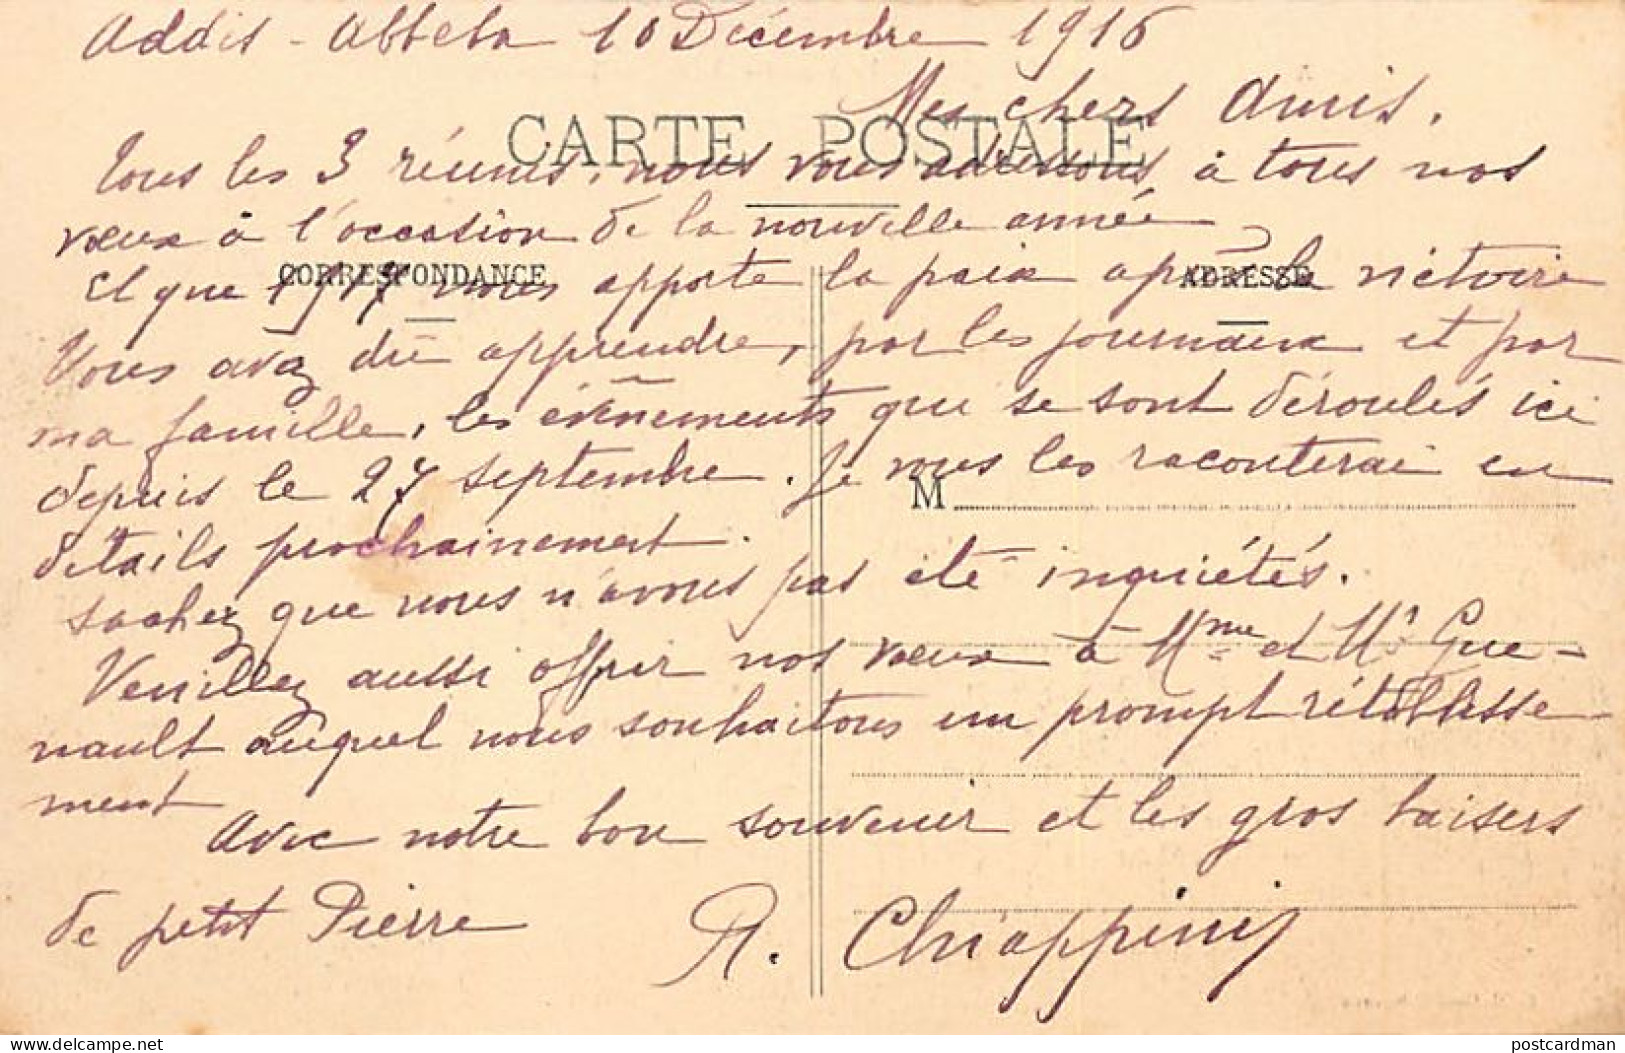 Addis-Abbeba 10 Décembre 1916
Mes chers Amis.
CARTE POSTALE
Tous les 3 réunis, nous vous adressons à tous nos
vœux à l'occasion de la nouvelle année
CORRESPONDANCE
ADRESSE
Et que 1917 nous apporte la paix après la victoire
Vous avez dû apprendre, par les journaux et par
ma famille, les évènements qui se sont déroulés ici
depuis le 27 septembre. Je vous les raconterai en
M
détails prochainement.
Sachez que nous n'avons pas été inquiétés.
Veuillez aussi offrir nos vœux à Mme et Mr Gue-
nault auquel nous souhaitons un prompt rétablisse-
ment
Avec notre bon souvenir et les gros baisers
de petit Pierre
R. Chiappini
postcardman